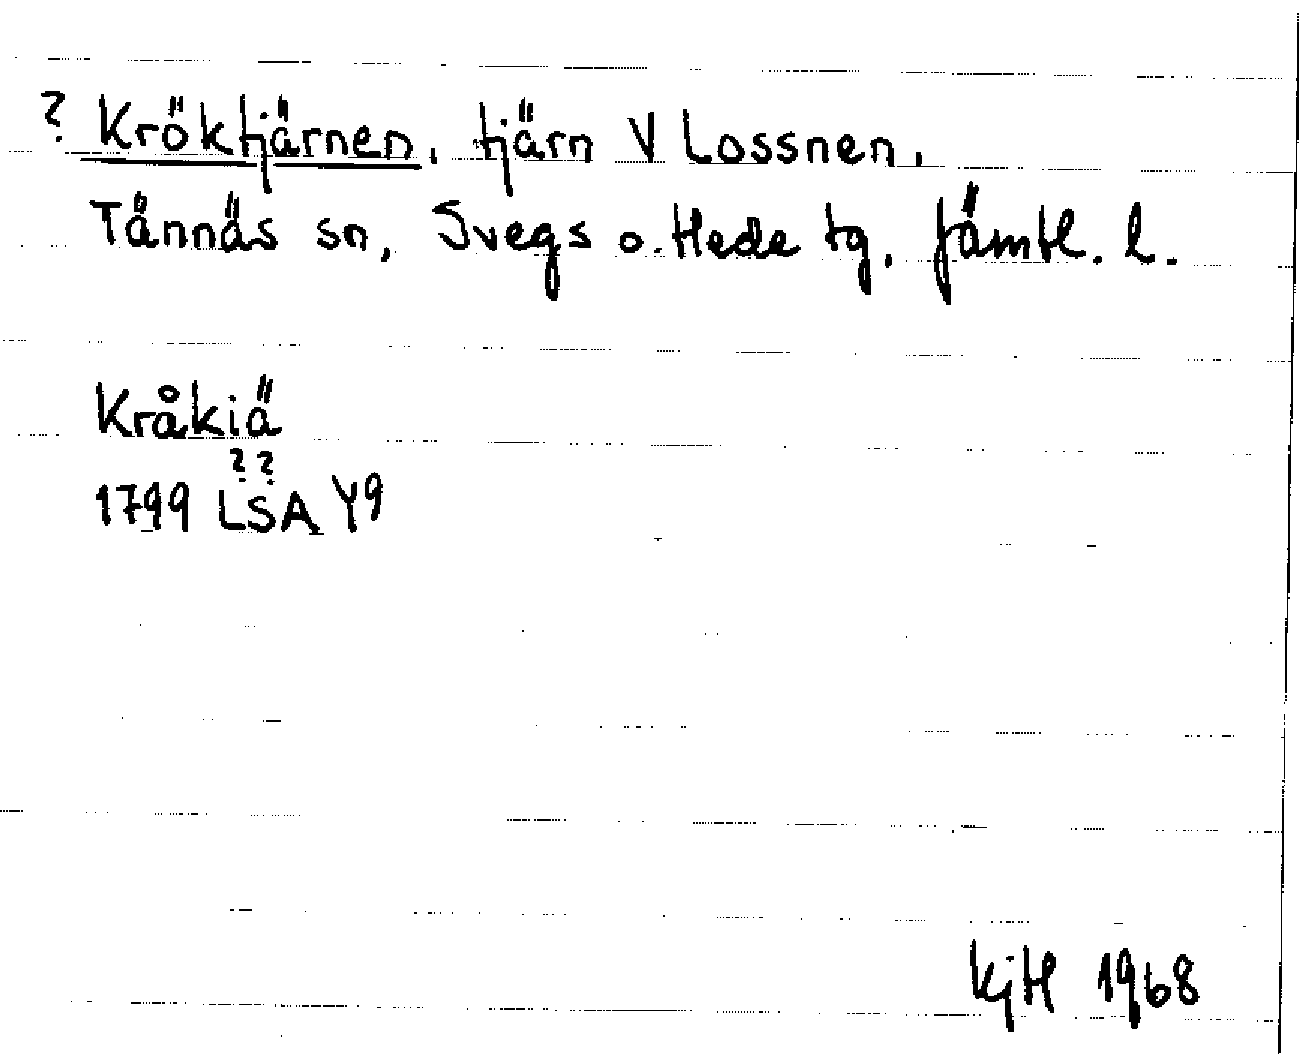 ? Kröktjärnen, tjärn V Lossnen,
Tännäs sn, Svegs o. Hede tg, Jämtl. l.
Kråkiä
? ?
1799 LSA Y9
KjH 1968